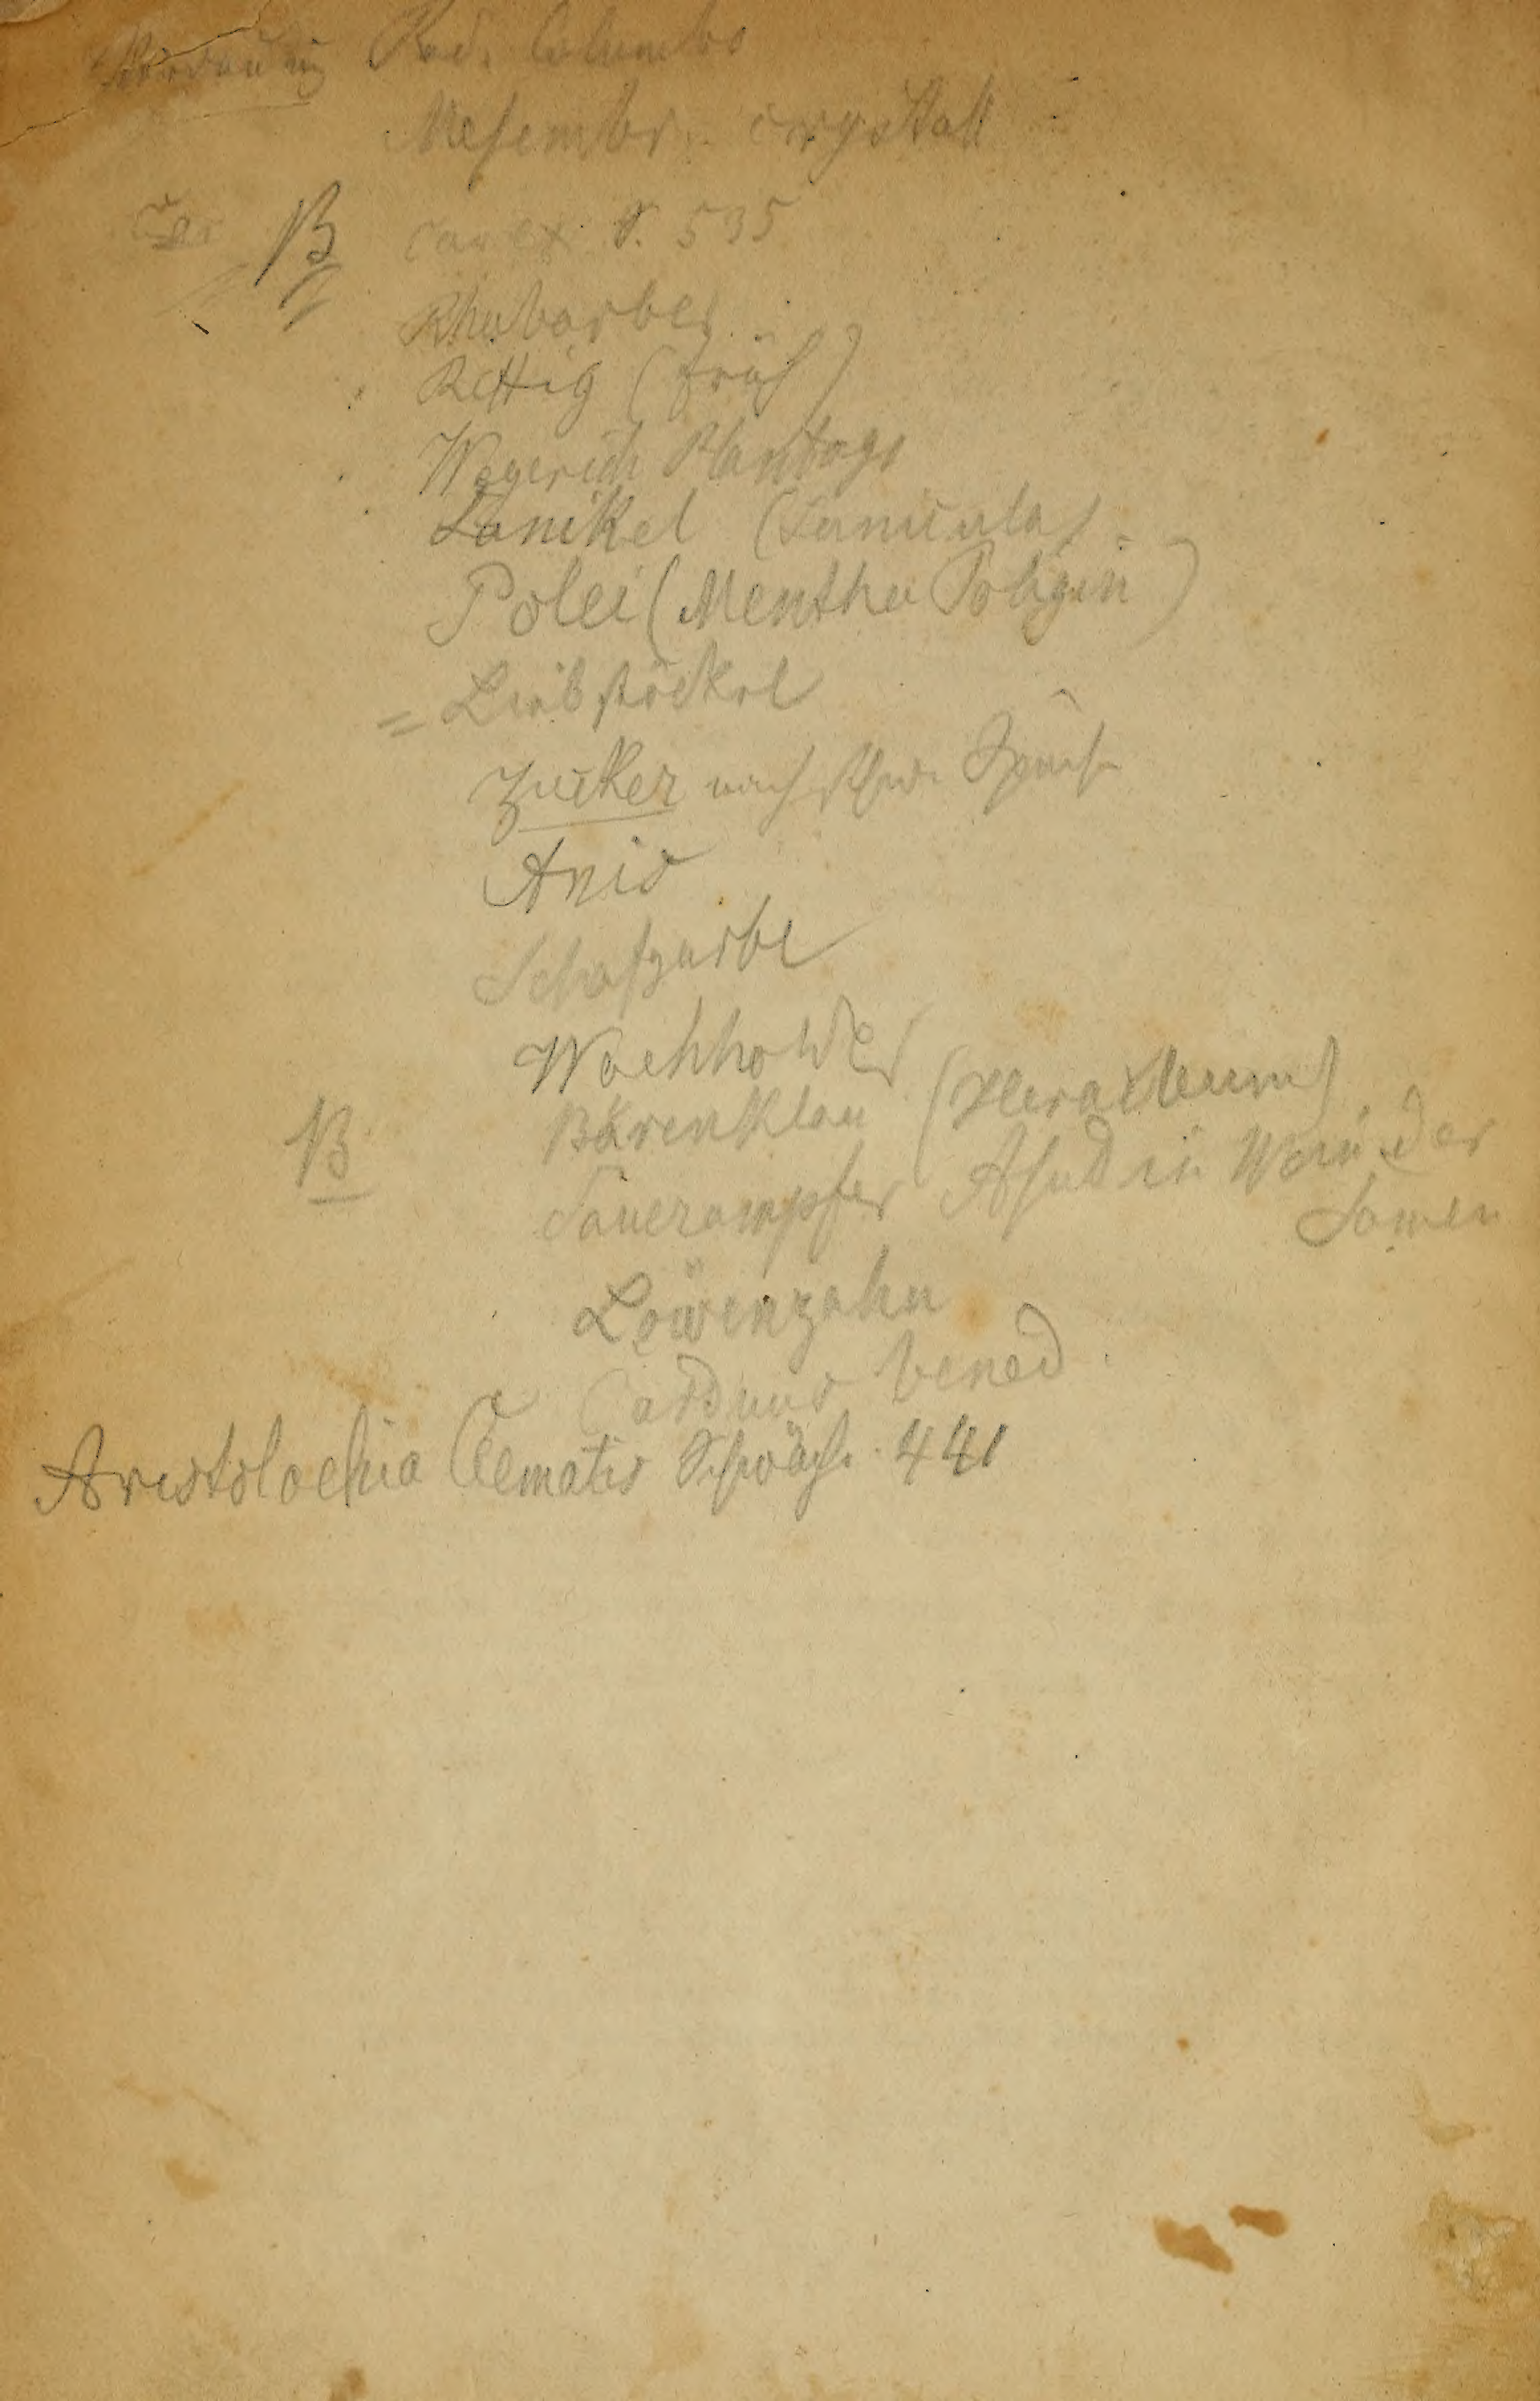 Verdauung Rad. Columbo
Mesembr. crystall
B carex S. 535
Rhabarber
Rettig (früh)
Wegerich Plantago
Sanikel (Sanicula)
Polei (Mentha Polegin)
= Liebstöckel
Zucker nach
Anis
Schafgarbe
Wachholder
B Bärenklau (Heracleum)
Sauerampfer Absud in Wein der
Samen
Löwenzahn
Carduus bened.
Aristolochia Clematis Schwäche 441